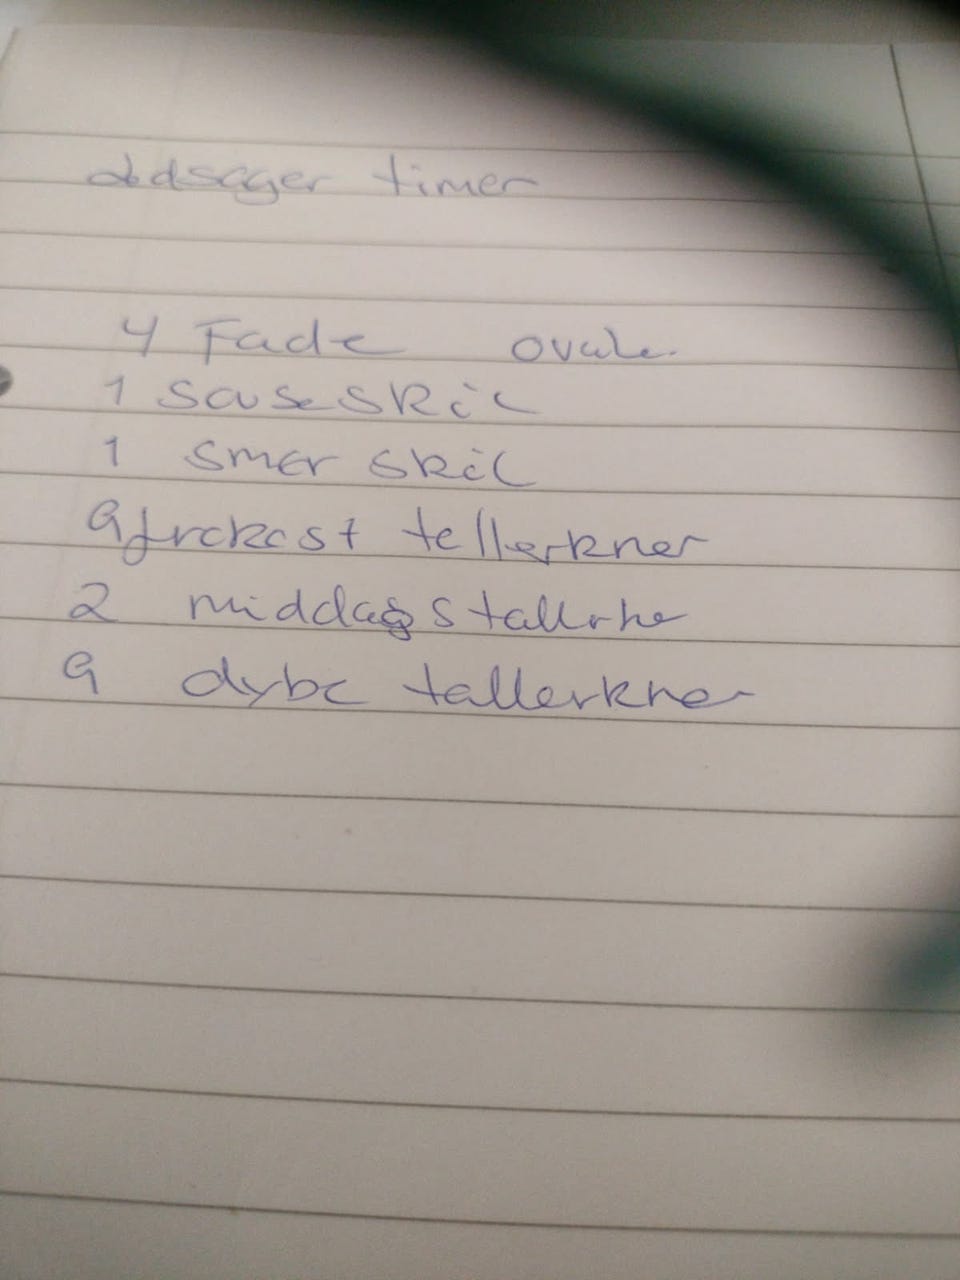 timer
4 Fade ovale
1 Sause skil
1 smer skil
9 frokost tellerkner
2 middags tallrke
9 dybe tallerkner